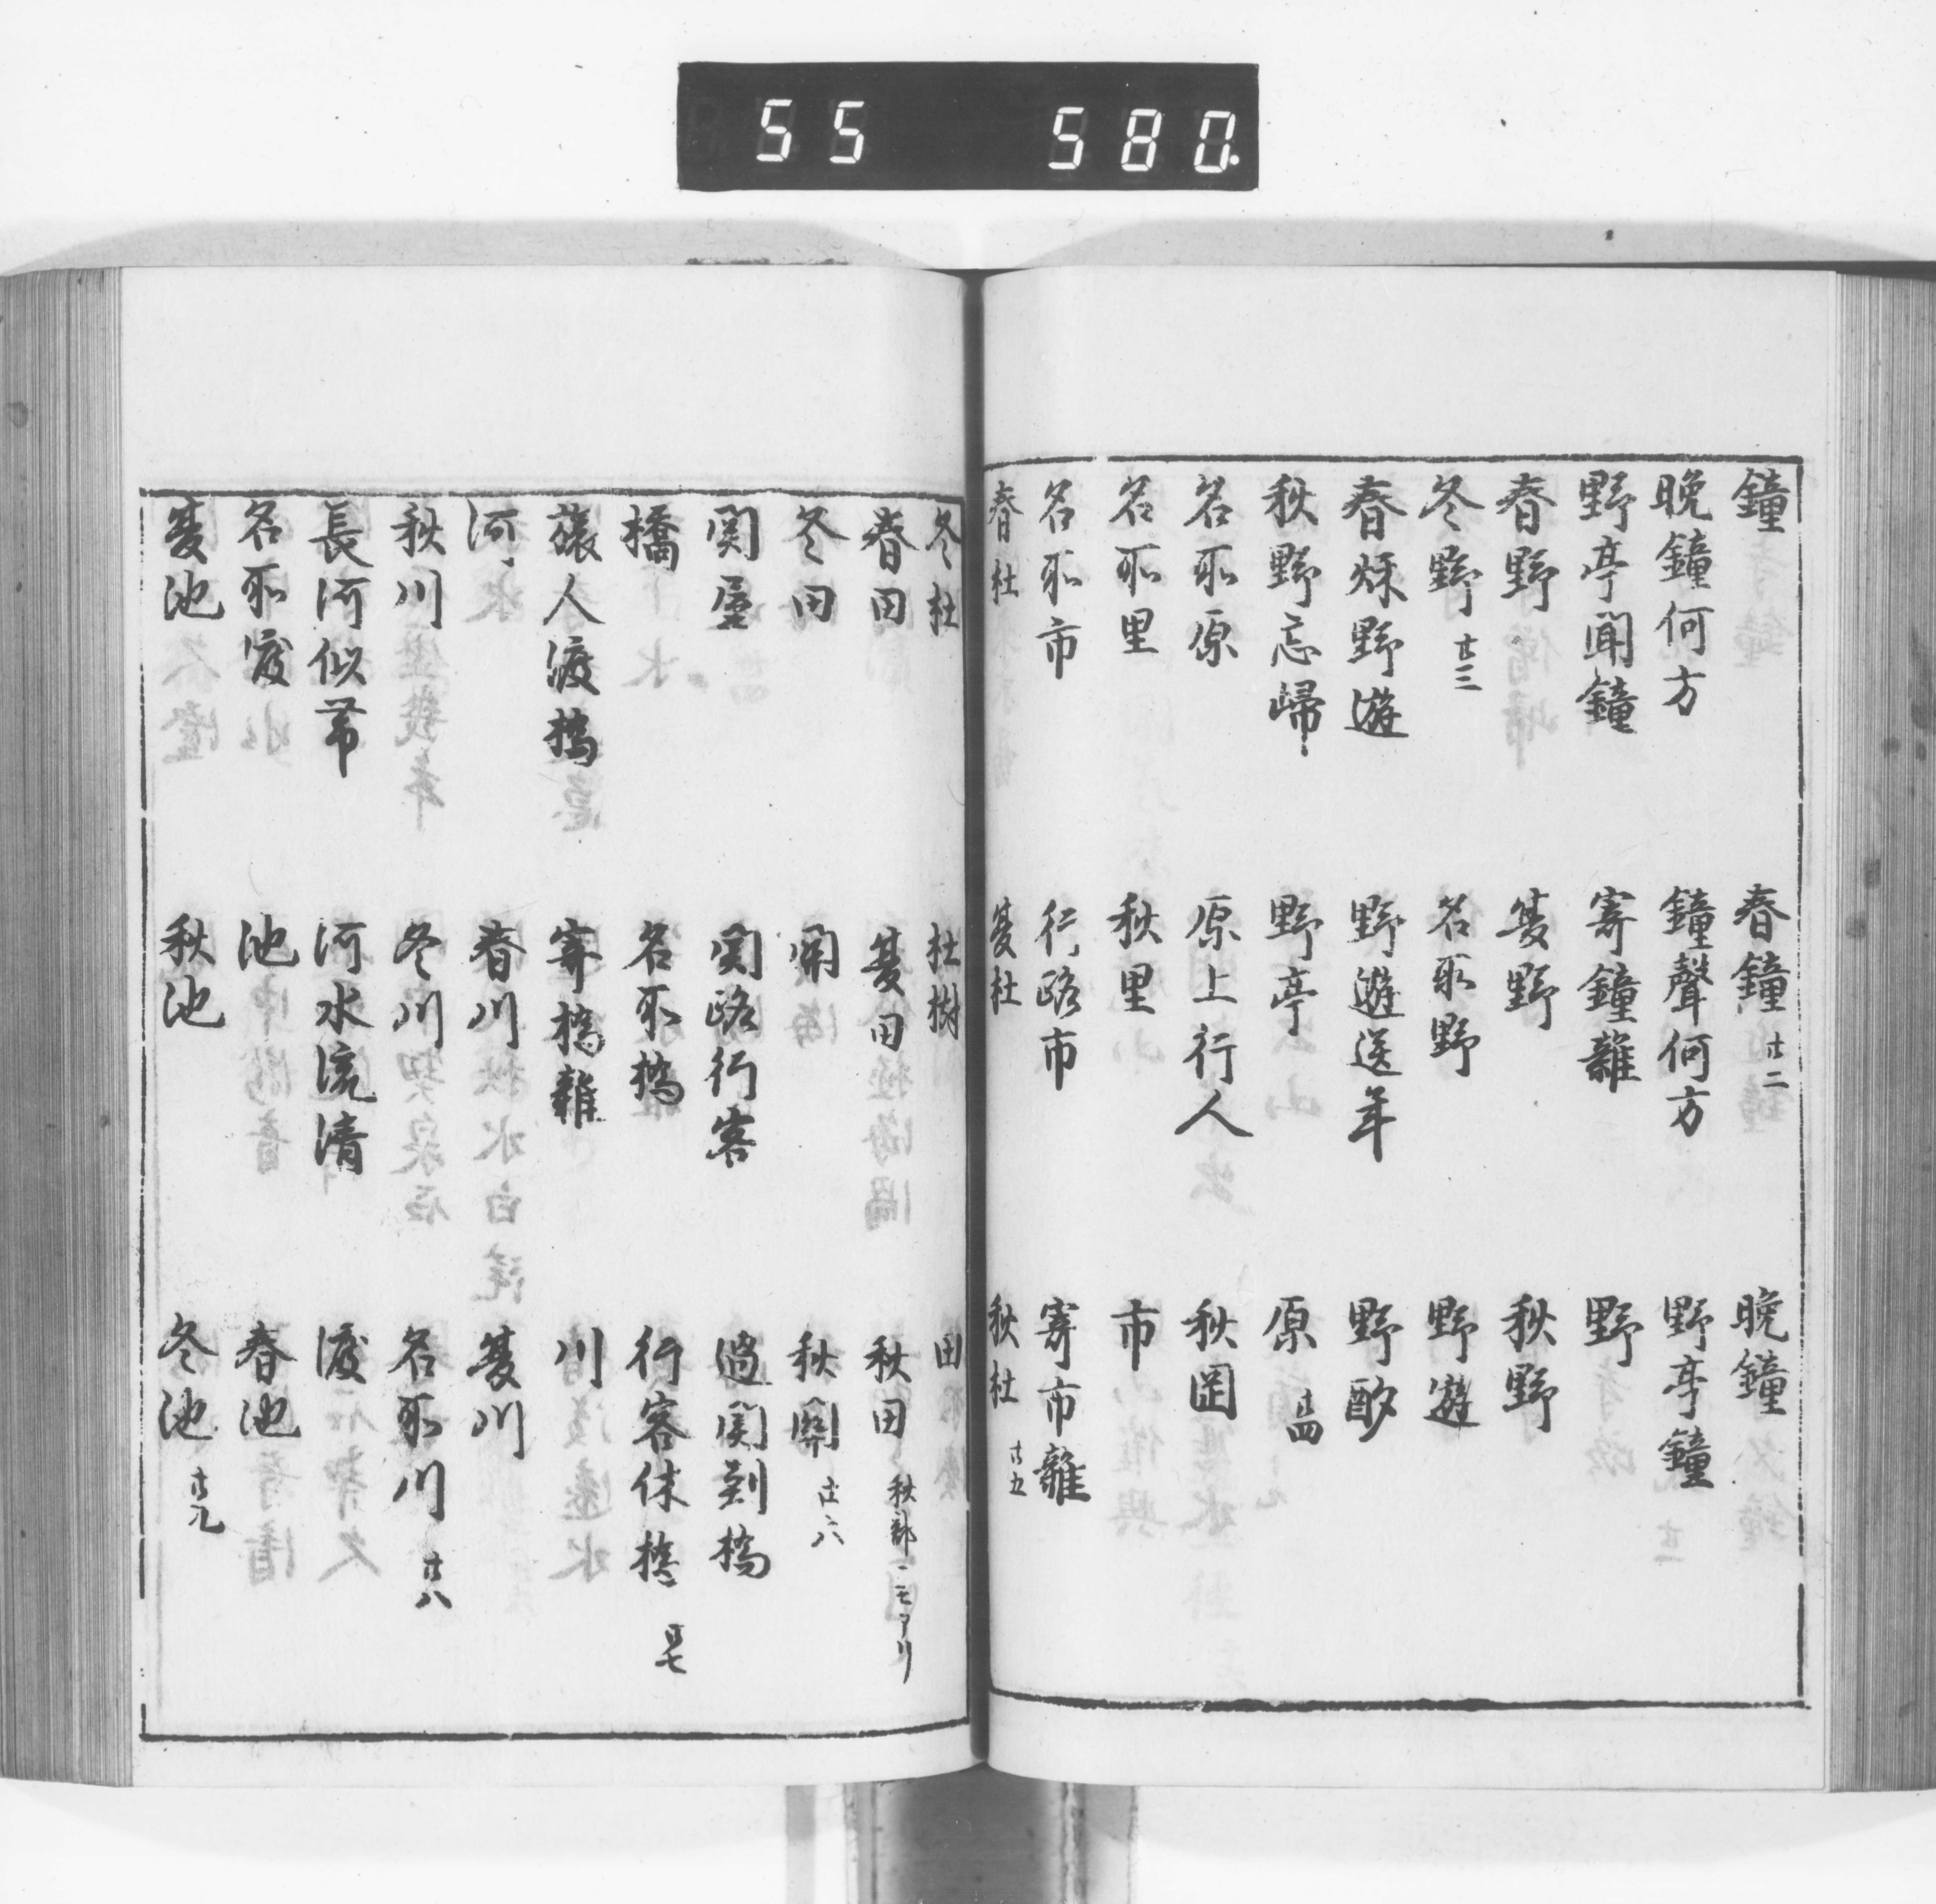 55 580.
鐘 春鐘 廿二 晩鐘
晩鐘何方 鐘聲何方 野亭鐘
野亭聞鐘 寄鐘雜 野
春野 夏野 秋野
冬野 廿三 名所野 野遊
春秋野遊 野遊送年 野酌
秋野忘歸 野亭 原 廿四
名所原 原上行人 秋岡
名所里 秋里 市
名所市 行路市 寄市雜
春杜 夏杜 秋杜 廿五
冬杜 杜樹 田
春田 夏田 秋田 秋部ニモアリ
冬田 関 秋關 廿六
関屋 関路行客 過関到橋
橋 名所橋 行客休橋 廿七
旅人渡橋 寄橋雜 川
河 春川 夏川
秋川 冬川 名所川 廿八
長河似帯 河水流清 渡
名所渡 池 春池
夏池 秋池 冬池 廿九